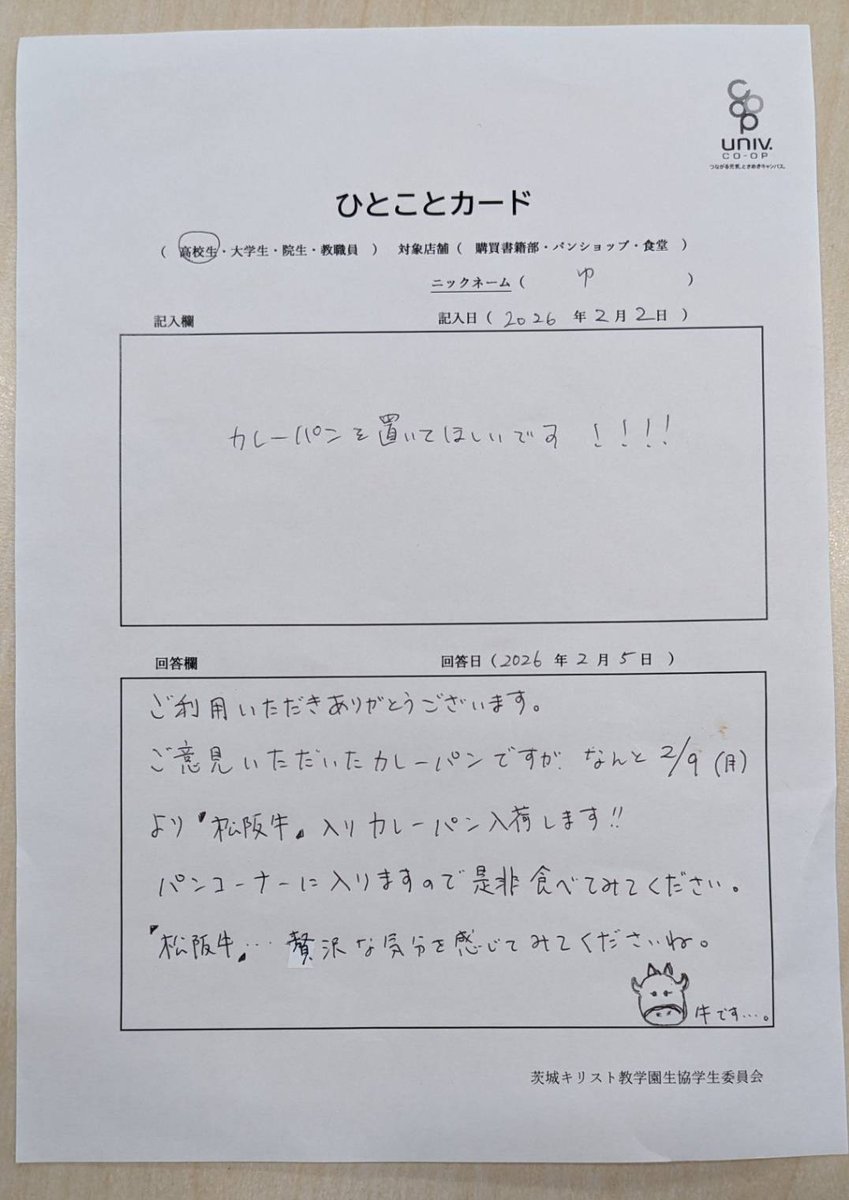 coop
univ.
CO-OP
つながる元気、ときめきキャンパス。
ひとことカード
（ 高校生・大学生・院生・教職員 ） 対象店舗（ 購買書籍部・パンショップ・食堂 ）
ニックネーム（ ゆ ）
記入欄 記入日（ 2026 年 2 月 2 日 ）
カレーパンを置いてほしいです ！！！！
回答欄 回答日（2026 年 2 月 5 日 ）
ご利用いただきありがとうございます。
ご意見いただいたカレーパンですが、なんと 2/9 (月)
より『松阪牛』入りカレーパン入荷します!!
パンコーナーに入りますので是非食べてみてください。
『松阪牛』… 贅沢な気分を感じてみてくださいね。
牛です…。
茨城キリスト教学園生協学生委員会